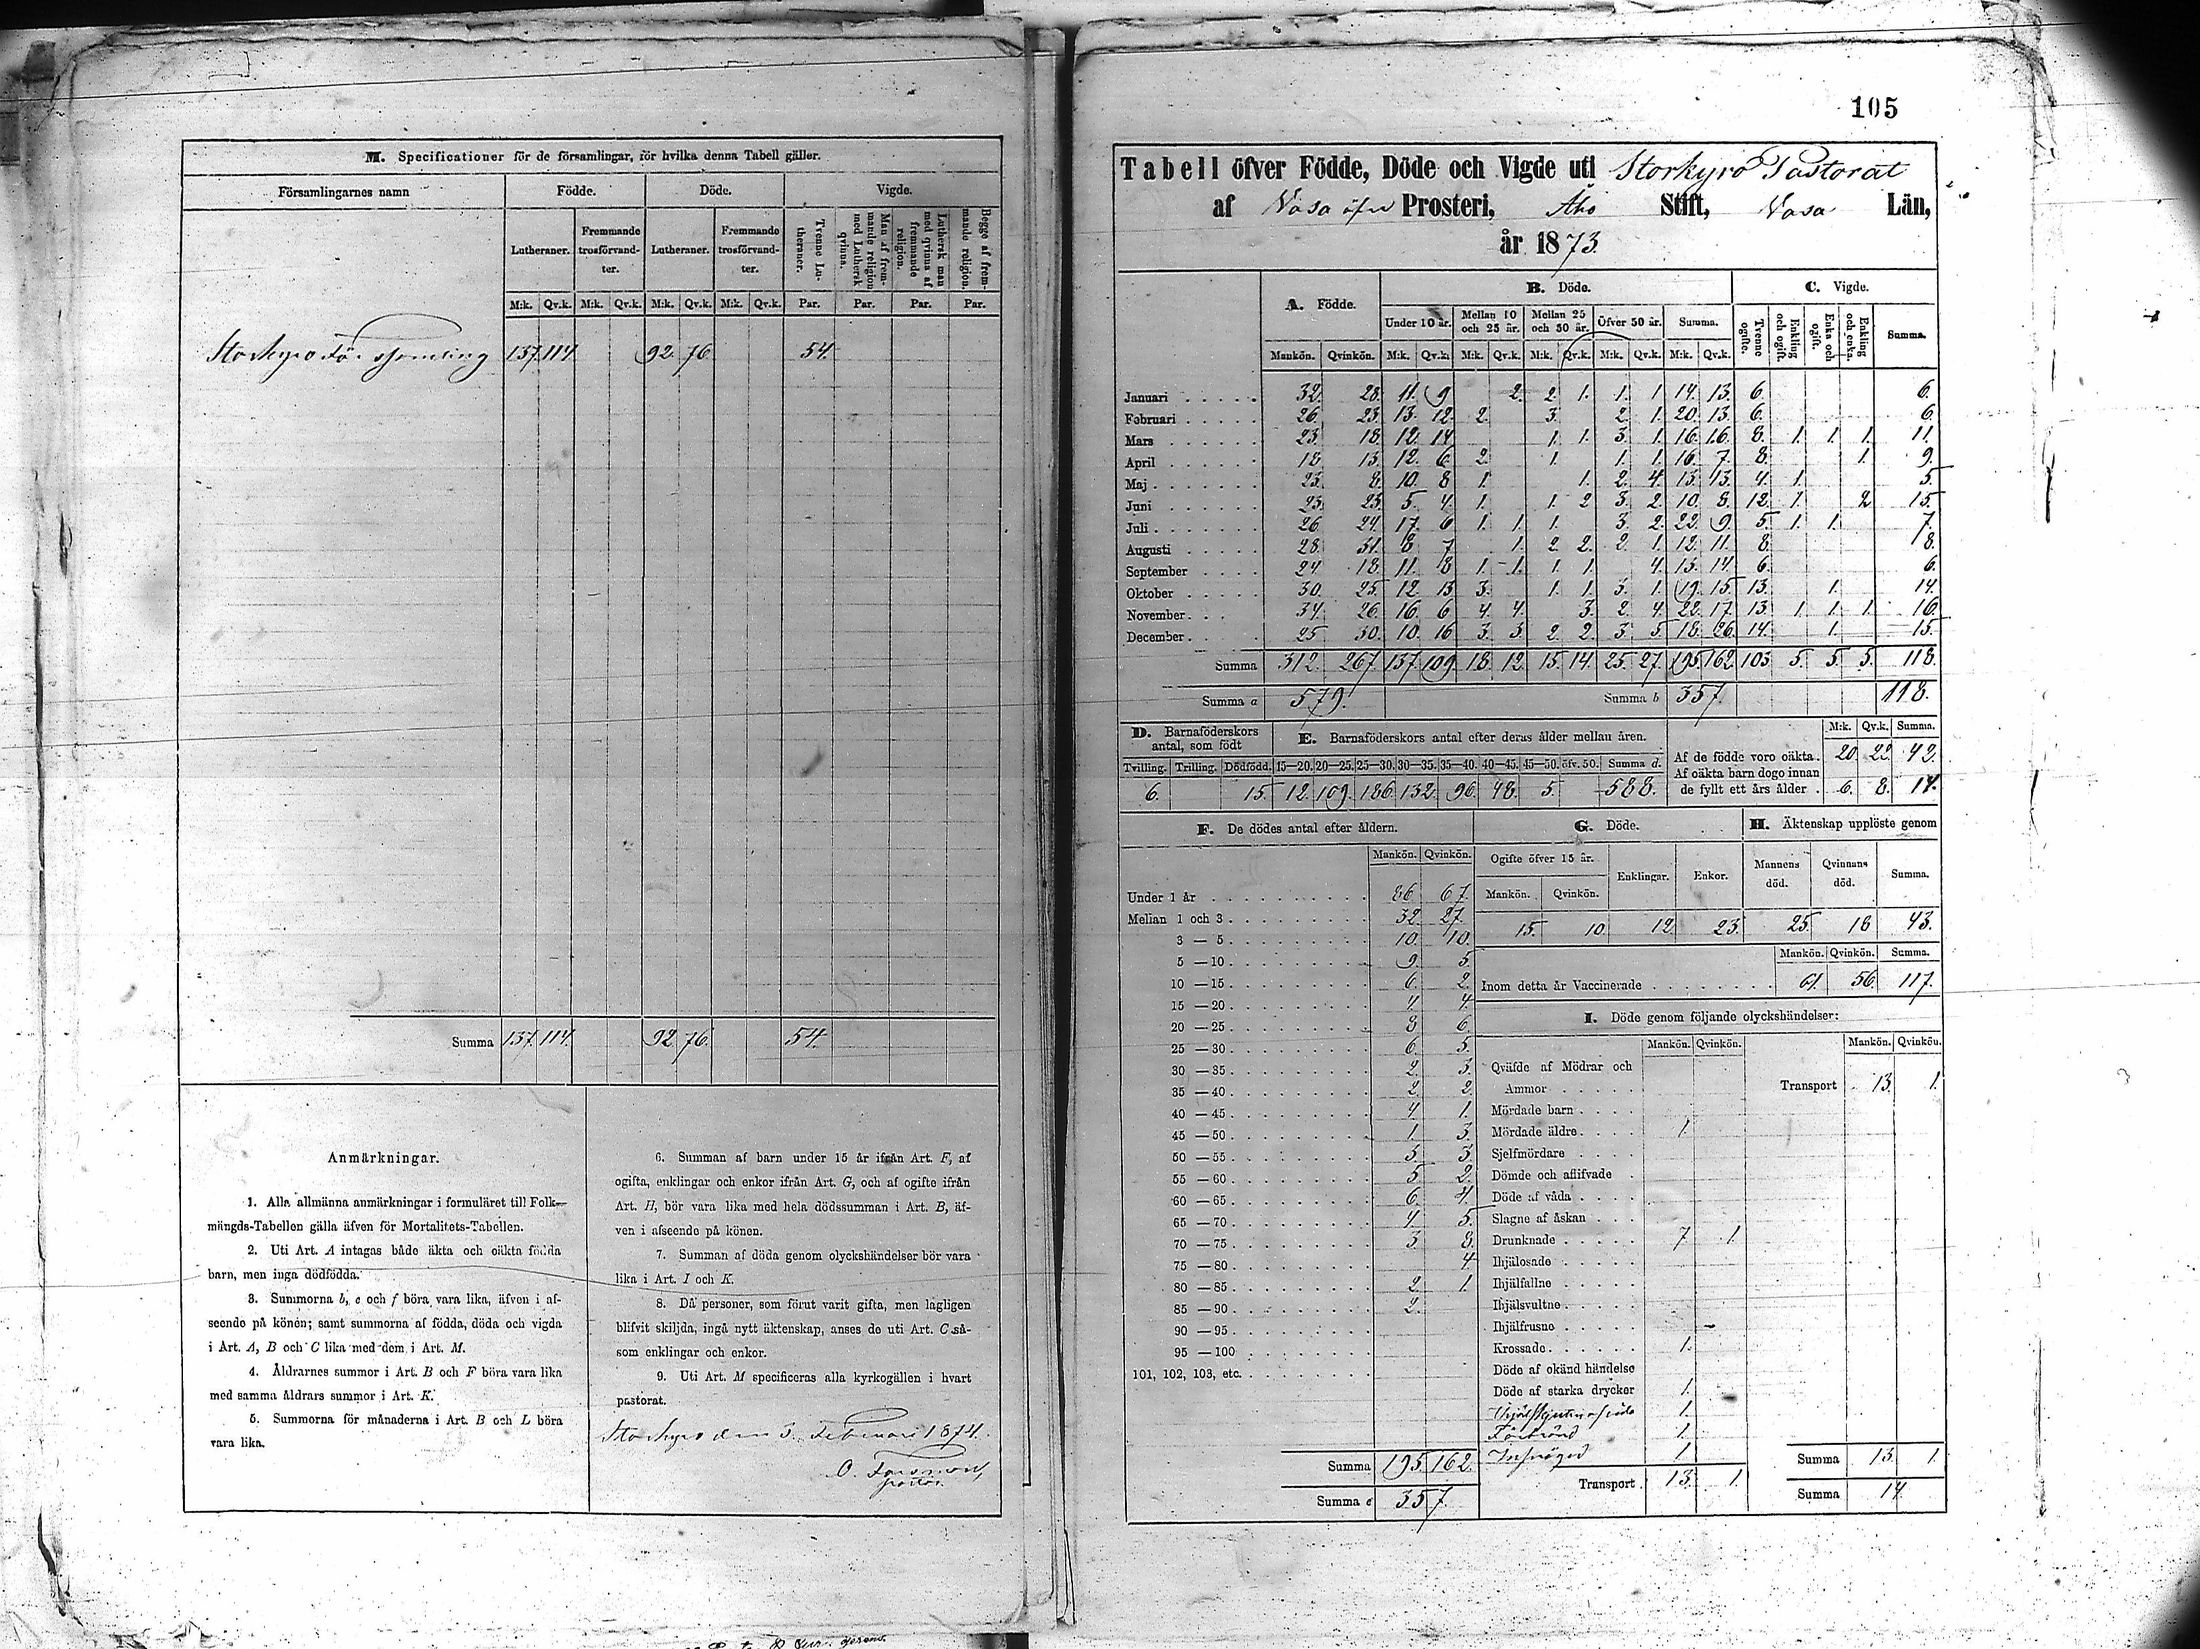 M. Specificationer för de församlingar, för hvilka denna Tabell gäller.
Församlingarnes namn Födde. Döde. Vigde.
Lutheraner. Fremmande trosförvandter. Lutheraner. Fremmande trosförvandter. Tvenne Lutheraner. Man af fremmande religion med Luthersk qvinna. Luthersk man med qvinna af fremmande religion. Begge af fremmande religion.
M:k. Qv.k. M:k. Qv.k. M:k. Qv.k. M:k. Qv.k. Par. Par. Par. Par.
Storkyro Församling 137. 114. 92. 76. 54.
Summa 137. 114. 92 76. 54.
Anmärkningar.
1. Alla allmänna anmärkningar i formuläret till Folk-
mängds-Tabellen gälla äfven för Mortalitets-Tabellen.
2. Uti Art. A intagas både äkta och oäkta födda
barn, men inga dödfödda.
3. Summorna b, e och f böra vara lika, äfven i af-
seende på könen; samt summorna af födda, döda och vigda
i Art. A, B och C lika med dem i Art. M.
4. Åldrarnes summor i Art. B och F böra vara lika
med samma åldrars summor i Art. K.
5. Summorna för månaderna i Art. B och L böra
vara lika.
6. Summan af barn under 15 år ifrån Art. F, af
ogifta, enklingar och enkor ifrån Art. G, och af ogifte ifrån
Art. H, bör vara lika med hela dödssumman i Art. B, äf-
ven i afseende på könen.
7. Summan af döda genom olyckshändelser bör vara
lika i Art. I och K.
8. Då personer, som förut varit gifta, men lagligen
blifvit skiljda, ingå nytt äktenskap, anses de uti Art. C så-
som enklingar och enkor.
9. Uti Art. M specificeras alla kyrkogällen i hvart
pastorat.
Storkyro den 3. Februari 1874.
O. Forsman,
pastor.
105
Tabell öfver Födde, Döde och Vigde uti Storkyro Pastorat
af Vasa öfre Prosteri, Åbo Stift, Vasa Län,
år 1873.
A. Födde. B. Döde. C. Vigde.
Under 10 år. Mellan 10 och 25 år. Mellan 25 och 50 år. Öfver 50 år. Summa. Tvenne ogifte. Enkling och ogift. Enka och ogift. Enkling och enka. Summa.
Mankön. Qvinkön. M:k. Qv.k. M:k. Qv.k. M:k. Qv.k. M:k. Qv.k. M:k. Qv.k.
Januari 32. 28. 11. 9 2. 2 1. 1. 1 14. 13. 6. 6.
Februari 26. 23. 13. 12. 2. 3. 2 1. 20. 13. 6. 6.
Mars 23. 18. 12. 14 1. 1. 3. 1. 16. 16. 8. 1. 1. 1. 11.
April 18 13. 12. 6. 2. 1. 1. 1. 16. 7. 8. 1. 9.
Maj 23. 8. 10. 8 1. 1. 2. 4. 13. 13. 4. 1. 5.
Juni 23. 23. 5. 4. 1. 1. 2 3. 2. 10. 8. 12. 1. 2 15.
Juli 26 24. 17. 6 1. 1. 1. 3. 2. 22. 9. 5. 1. 1. 7.
Augusti 28. 31. 8 7 1. 2. 2. 2. 1. 12. 11. 8. 8.
September 24 18. 11. 8 1. 1. 1. 1. 4. 13. 14. 6. 6.
Oktober 30. 25. 12. 13 3. 1. 1. 3. 1. 19. 15. 13. 1. 14.
November 34. 26. 16. 6 4 4. 3. 2 4. 22. 17. 13. 1. 1. 1. 16.
December 25 30. 10. 16 3. 3 2. 2. 3 5. 18. 26. 14. 1. 15.
Summa 312. 267. 137. 109. 18. 12. 15. 14. 25. 27. 195. 162. 103. 5. 5. 5. 118.
Summa a 579. Summa b 357. 118.
D. Barnaföderskors antal, som födt E. Barnaföderskors antal efter deras ålder mellan åren. M:k. Qv.k. Summa.
Tvilling. Trilling. Dödfödd. 15—20. 20—25. 25—30. 30—35. 35—40. 40—45. 45—50. öfv. 50. Summa d.
6. 15. 12. 109. 186. 132. 96. 48. 5. 588.
Af de födde voro oäkta. 20. 22. 42.
Af oäkta barn dogo innan de fyllt ett års ålder . 6. 8. 14.
F. De dödes antal efter åldern.
Mankön. Qvinkön.
Under 1 år 86 67.
Mellan 1 och 3 32 27.
3 — 5 10. 10.
5 — 10 9. 5.
10 — 15 6. 2.
15 — 20 4. 4.
20 — 25 8 6.
25 — 30 6. 5.
30 — 35 2. 3.
35 — 40 2. 2.
40 — 45 4. 1.
45 — 50 1. 3.
50 — 55 3 3.
55 — 60 5 2.
60 — 65 6. 4.
65 — 70 4. 5.
70 — 75 3 8.
75 — 80 4
80 — 85 2. 1.
85 — 90 2.
90 — 95
95 — 100
101, 102, 103, etc.
Summa 195. 162.
Summa e 357.
G. Döde. H. Äktenskap upplöste genom
Ogifte öfver 15 år. Enklingar. Enkor. Mannens död. Qvinnans död. Summa.
Mankön. Qvinkön.
15. 10. 12 23. 25. 18 43.
Mankön. Qvinkön. Summa.
Inom detta år Vaccinerade 61. 56. 117.
I. Döde genom följande olyckshändelser:
Mankön. Qvinkön. Mankön. Qvinkön.
Qväfde af Mödrar och
Ammor
Mördade barn
Mördade äldre 1.
Sjelfmördare
Dömde och aflifvade
Döde af våda
Slagne af åskan
Drunknade 7 1.
Ihjälosade
Ihjälfallne
Ihjälsvultne
Ihjälfrusne
Krossade 1.
Döde af okänd händelse
Döde af starka drycker 1.
Ihjälskjuten af våda 1.
Förbränd 1.
1.
Transport 13. 1.
Transport 13. 1.
Summa 13. 1.
Summa 14.